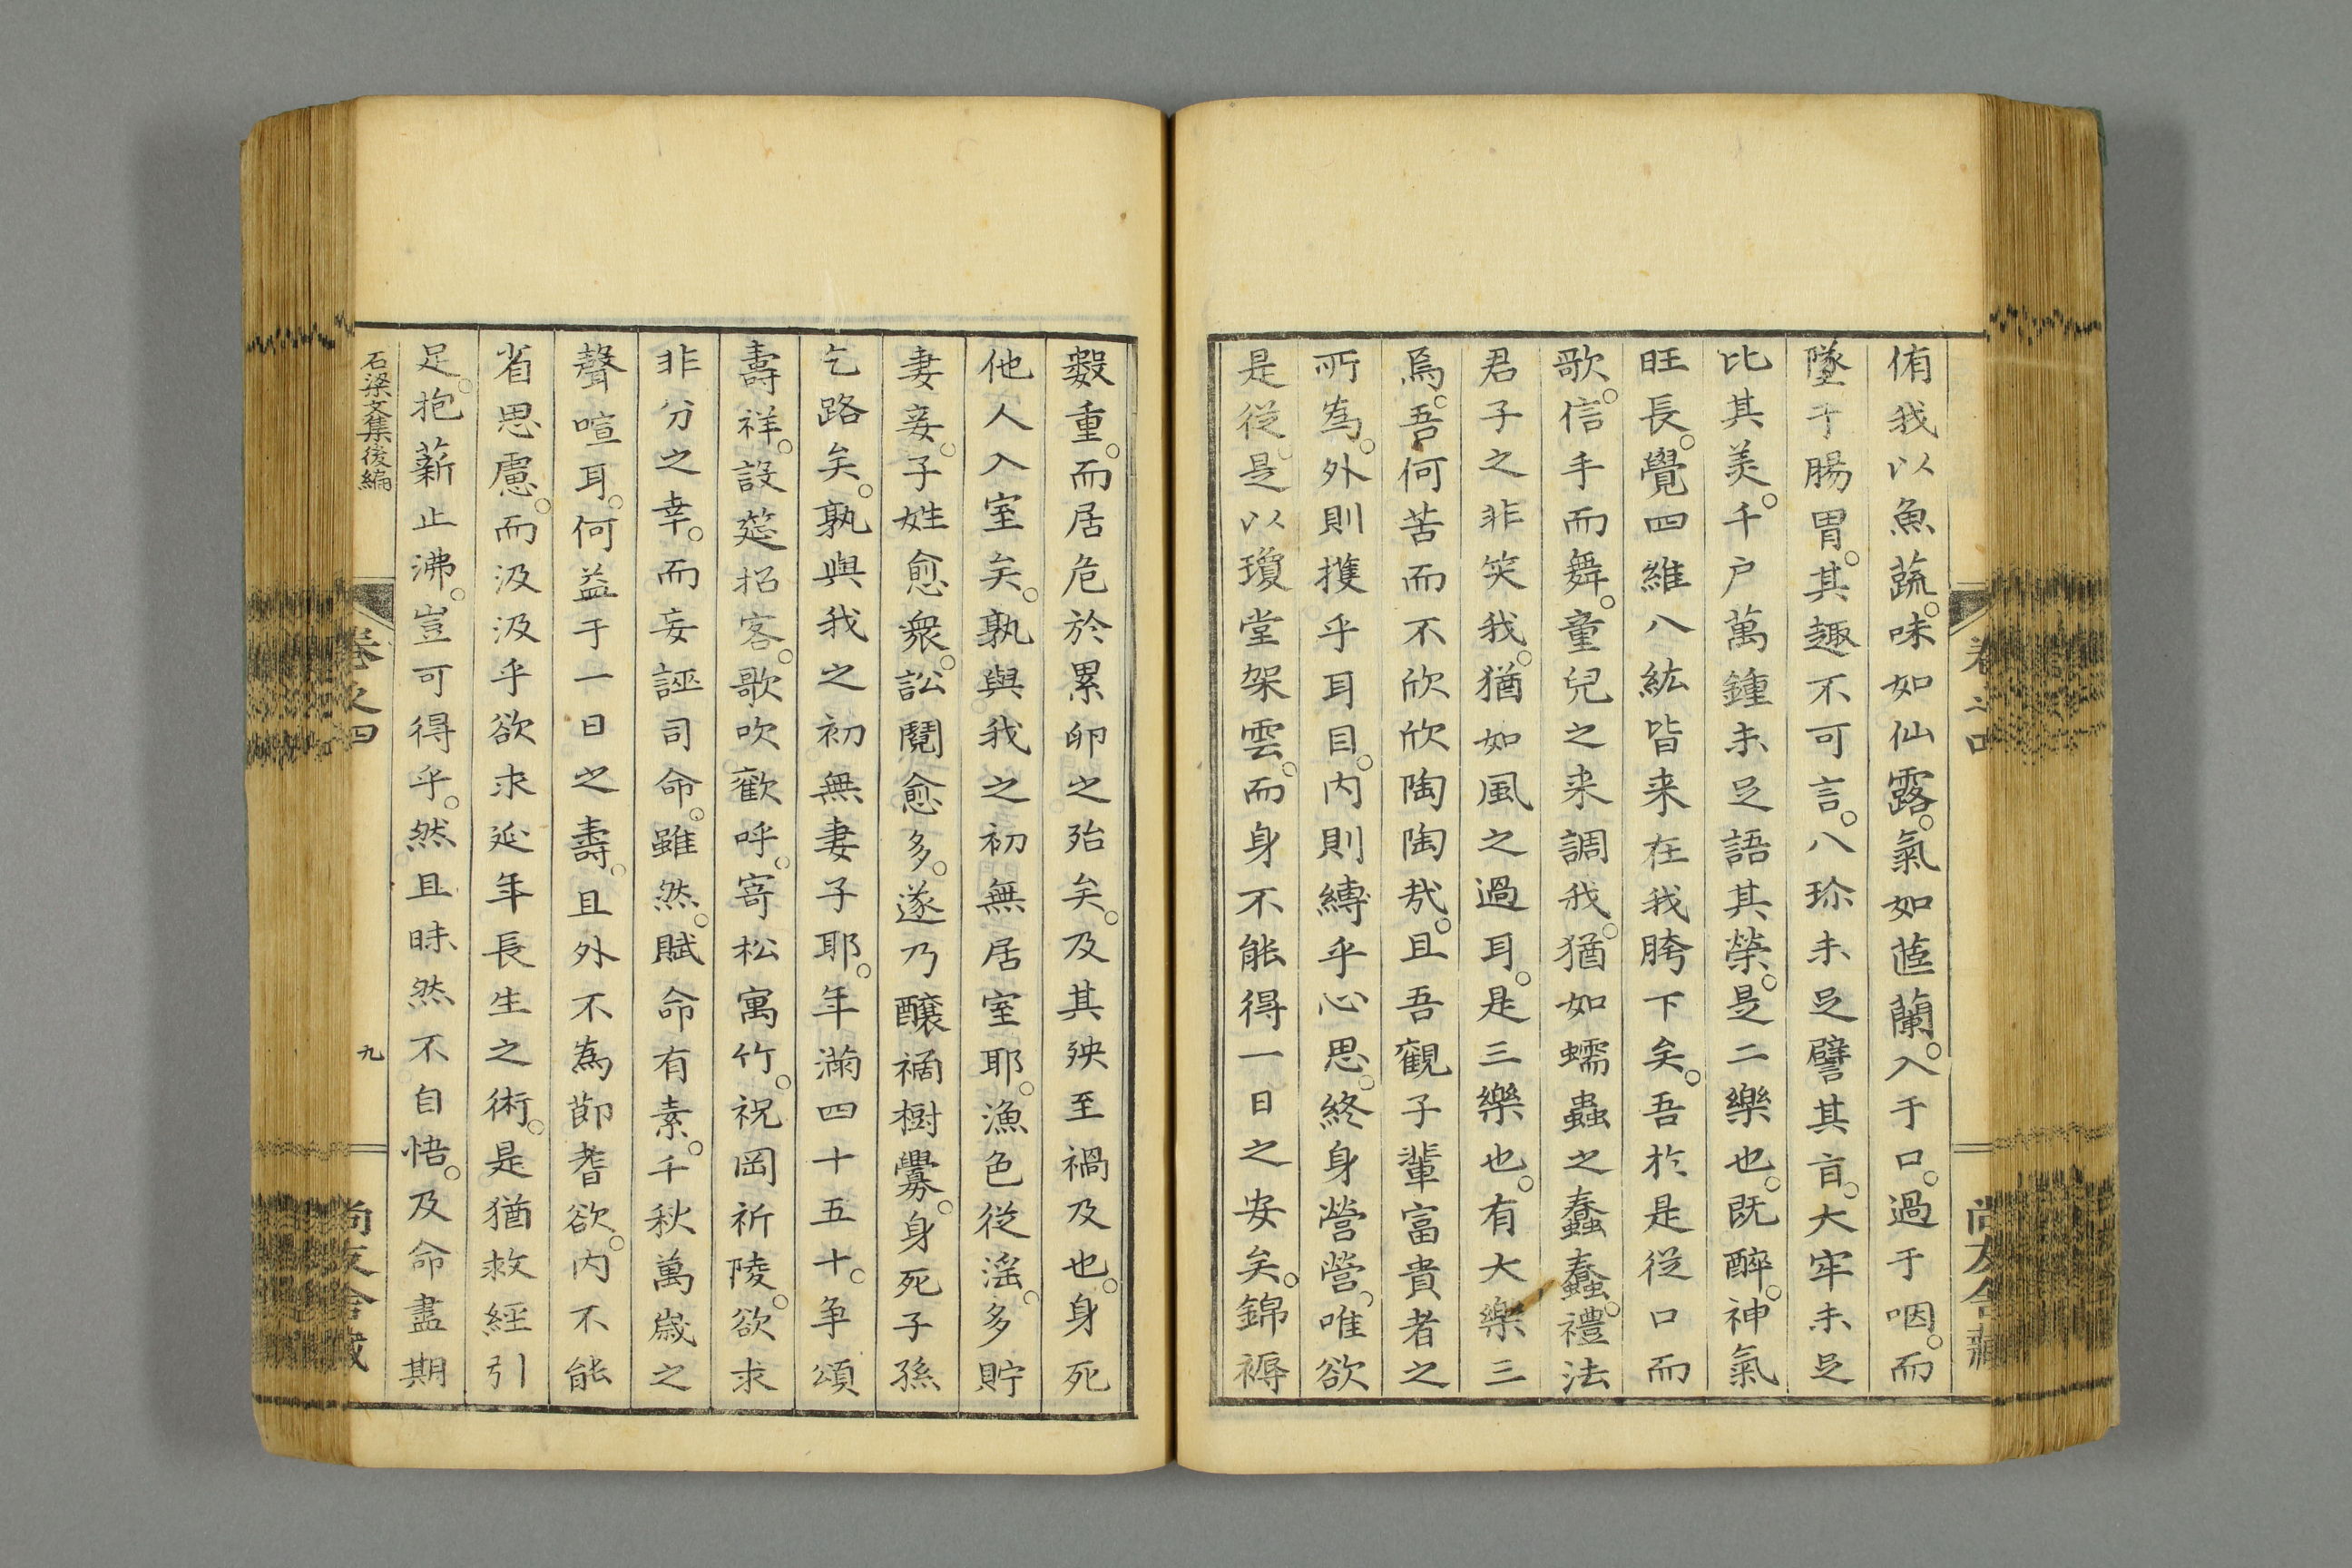 侑我以魚蔬。味如仙露。氣如茝蘭。入于口。過于咽。而
墜于腸胃。其趣不可言。八珎未足譬其㫖。大牢未足
比其美。千戸萬鍾未足語其榮。是二樂也。既醉。神氣
旺長。覺四維八紘皆来在我胯下矣。吾於是従口而
歌。信手而舞。童兒之来調我。猶如蠕蟲之蠢蠢。禮法
君子之非笑我。猶如風之過耳。是三樂也。有大樂三
焉。吾何苦而不欣欣陶陶哉。且吾觀子輩富貴者之
所為。外則擭乎耳目。内則縛乎心思。終身營營。唯欲
是従。是以瓊堂架雲。而身不能得一日之安矣。錦褥
數重。而居危於累卵之殆矣。及其殃至禍及也。身死
他人入室矣。孰與我之初無居室耶。漁色従滛。多貯
妻妾。子姓愈衆。訟鬩愈多。遂乃釀禍樹釁。身死子孫
乞路矣。孰與我之初無妻子耶。年滿四十五十。争頌
壽祥。設筵招客。歌吹歡呼。寄松寓竹。祝岡祈陵。欲求
非分之幸。而妄誣司命。雖然。賦命有素。千秋萬歲之
聲喧耳。何益于一日之壽。且外不為節耆欲。内不能
省思慮。而汲汲乎欲求延年長生之術。是猶救經引
足。抱薪止沸。豈可得乎。然且昧然不自悟。及命盡期
石梁文集後編
卷之四
九